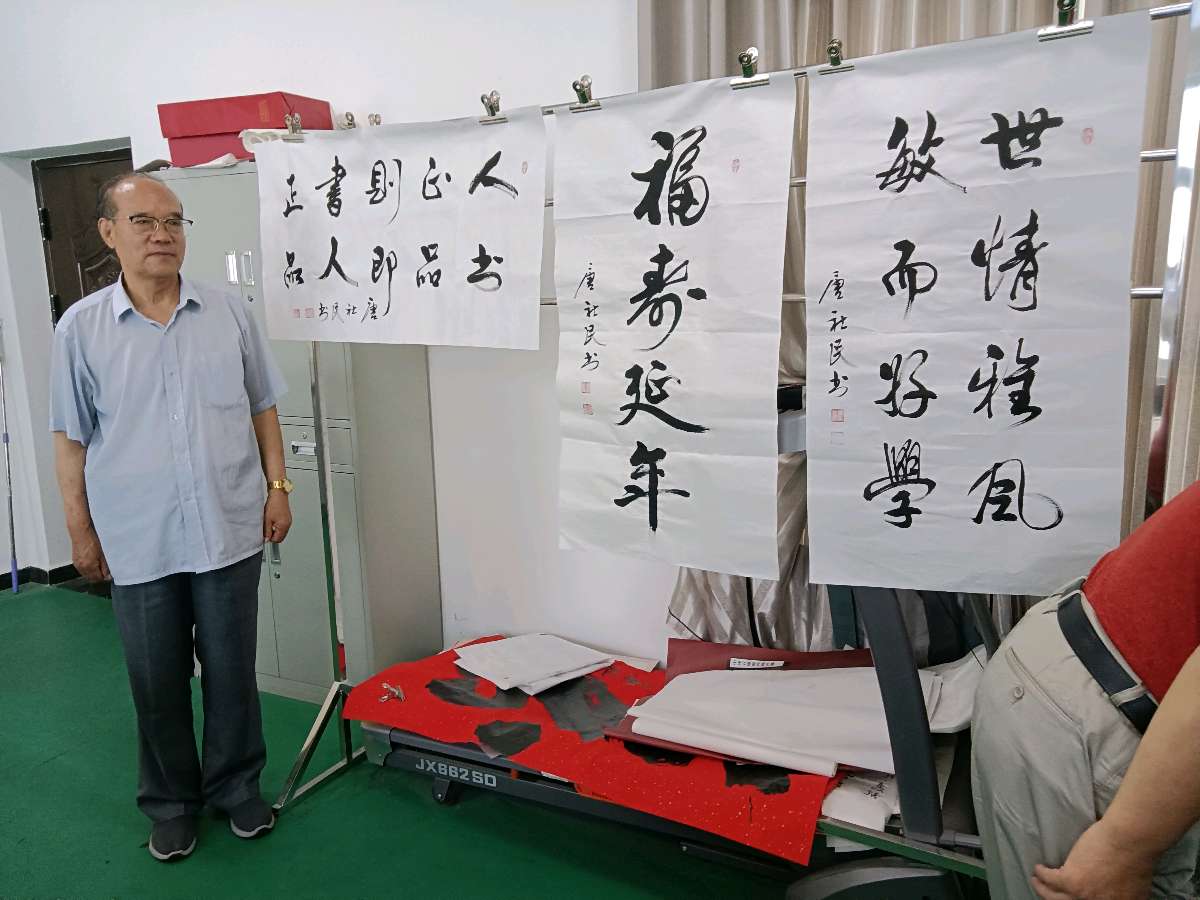 人正则書正
书品即人品
唐社民书
福寿延年
唐社民书
世情雅风
敏而好學
唐社民书
JX662SD